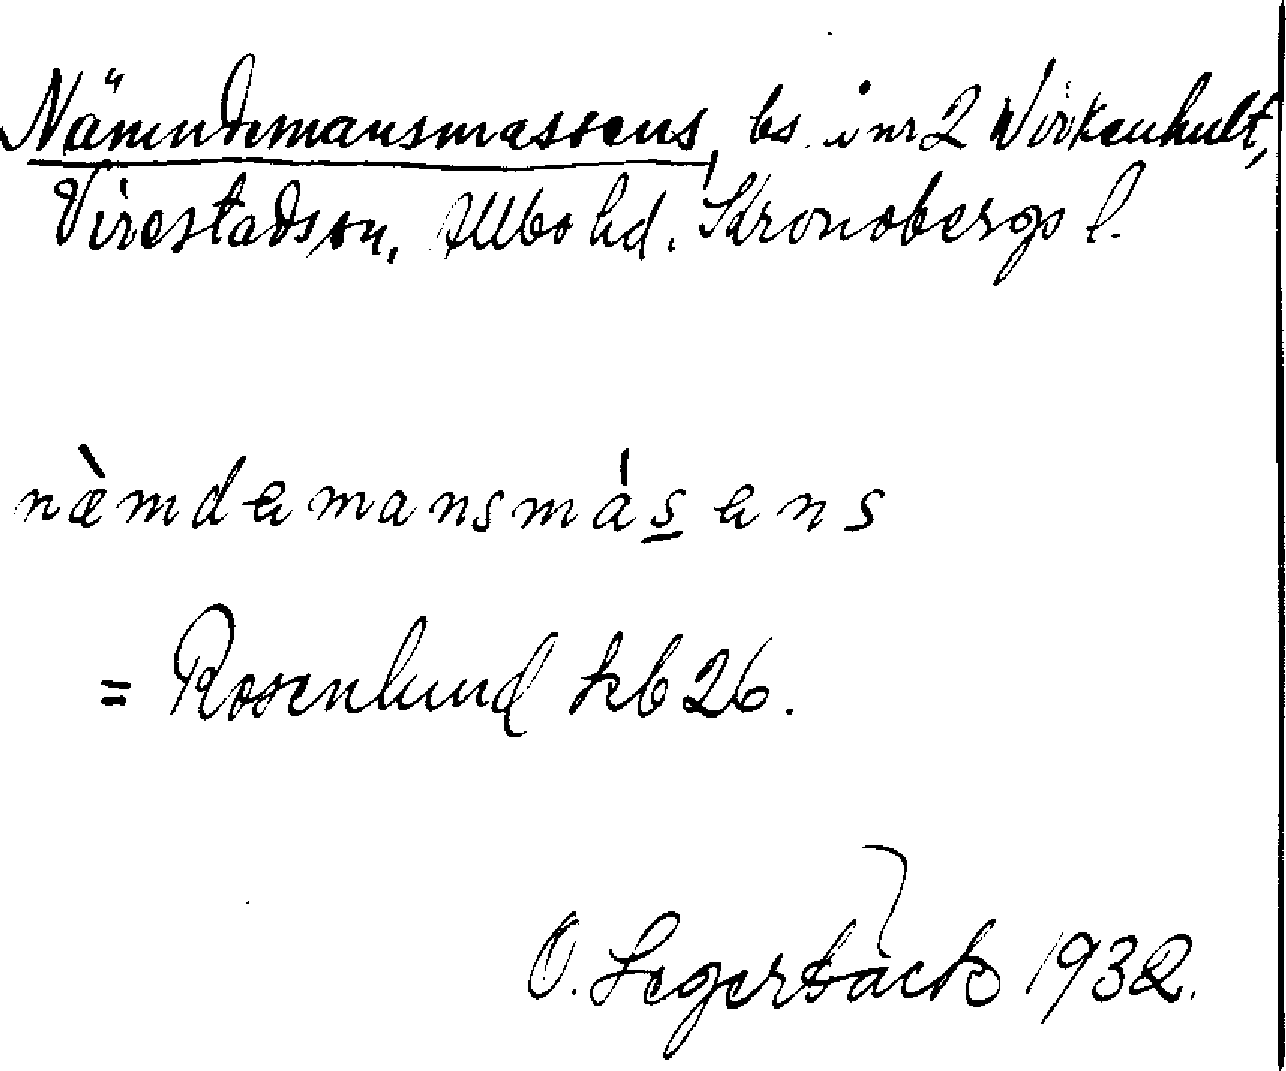 Nämndemansmassens, bs. i nr 2 Wirkenhult,
Virestads sn, Allbo hd. Kronobergs l.
næ̀mdemansmásens
= Rosenlund kb 26.
O. Segerbäck 1932.